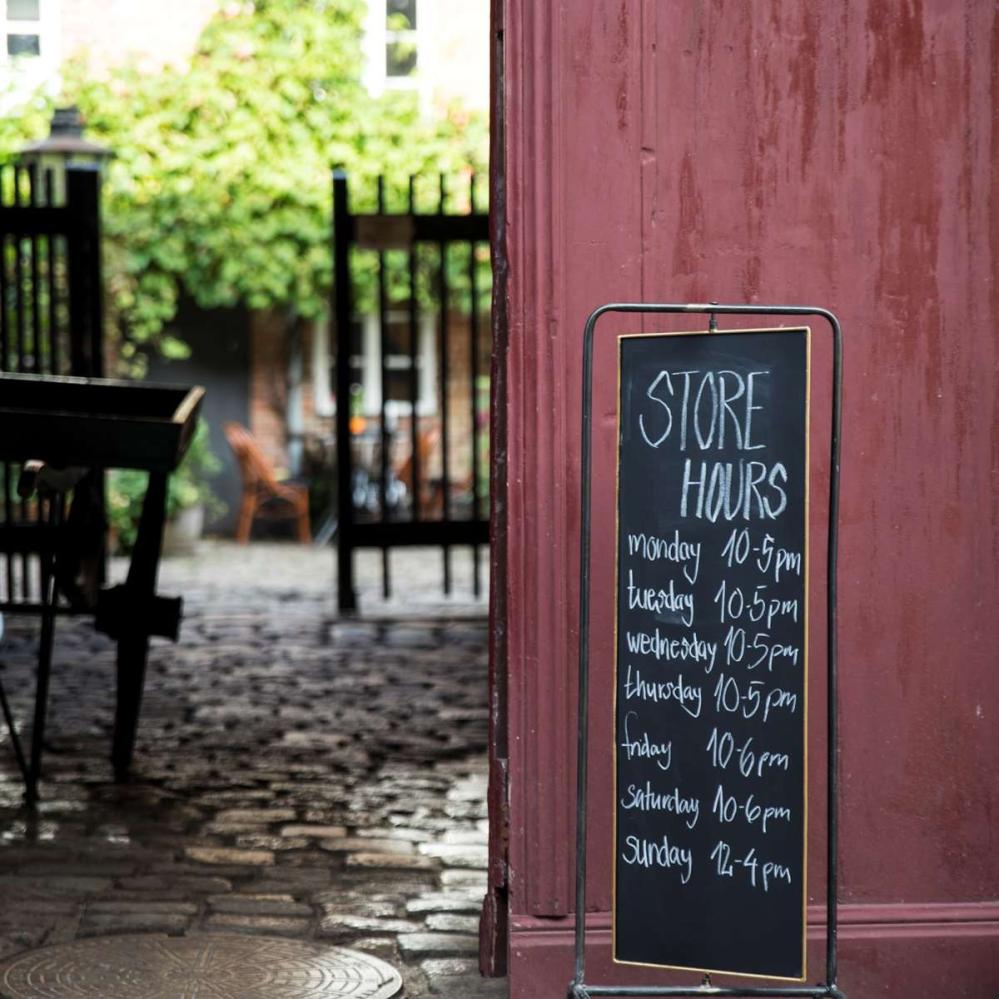 STORE
HOURS
monday 10-5pm
tuesday 10-5pm
wednesday 10-5pm
thursday 10-5pm
friday 10-6pm
saturday 10-6pm
sunday 12-4pm